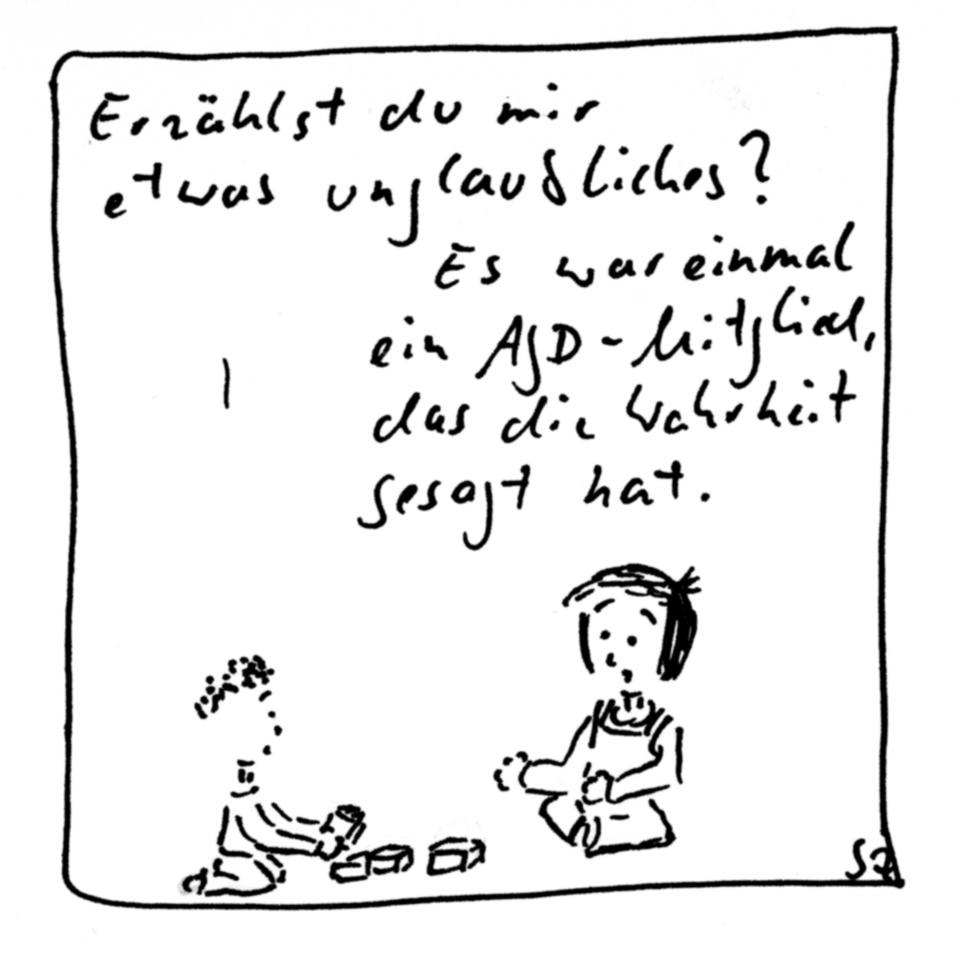 Erzählst du mir
etwas unglaubliches?
Es war einmal
ein AfD-Mitglied,
das die Wahrheit
gesagt hat.
SZ